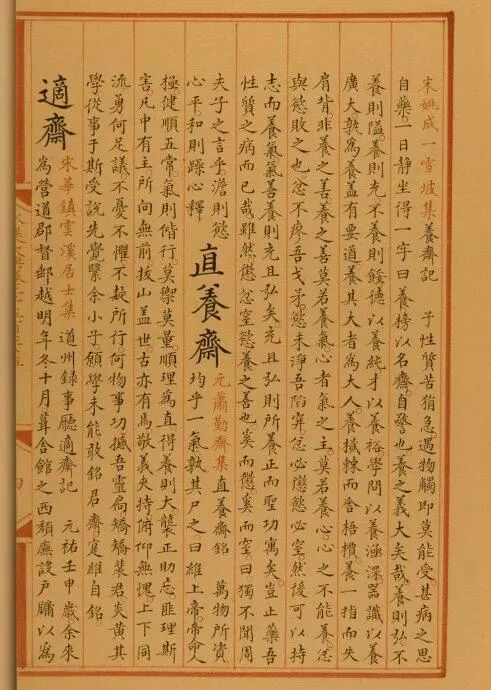 宋姚成一雪坡集養齋記 子性質若狷急遇物觸即莫能受甚病之思
自藥一日靜坐得一字曰養榜以名齋自警也養之義大矣哉養則弘不
養則隘養則充不養則餒德以養純才以養裕學問以養涵深器識以養
廣大孰為養蓋有要道養其大者為大人養樲棘而舍梧檟養一指而失
肩背非養之善養之善莫若養氣心者氣之主莫若養心心之不能養忿
與慾敗之也忿不廖吾戈矛慾未淨吾陷穽忿必懲慾必窒然後可以持
志而養氣氣善養則充且弘矣充且弘則所養正而聖功寓矣豈止藥吾
性質之病而已哉雖然懲忿窒慾養之善也奚而懲奚而窒曰獨不聞周
夫子之言乎澹則慾
心平和則躁心釋
直養齋
元蕭勤齋集直養齋銘 萬物所資
均乎一氣孰其尸之曰維上帝帝命人
極健順五常氣則偕行莫禦莫量順理為直得養則大襲正助忘匪理斯
害凡中有主所向無前拔山蓋世古亦有焉敬義夾持俯仰無愧上下同
流勇何足議不憂不懼不疑所行何物事功撼吾靈扃矯矯裴君炎黃其
學從事于斯受說先覺繄余小子願學未能敢銘君齋寔維自銘
適齋
宋華鎮雲溪居士集 道州錄事廳適齋記 元祐壬申歲余來
為營道郡督郵越明年冬十月葺舍館之西頹廡設戶牖以為